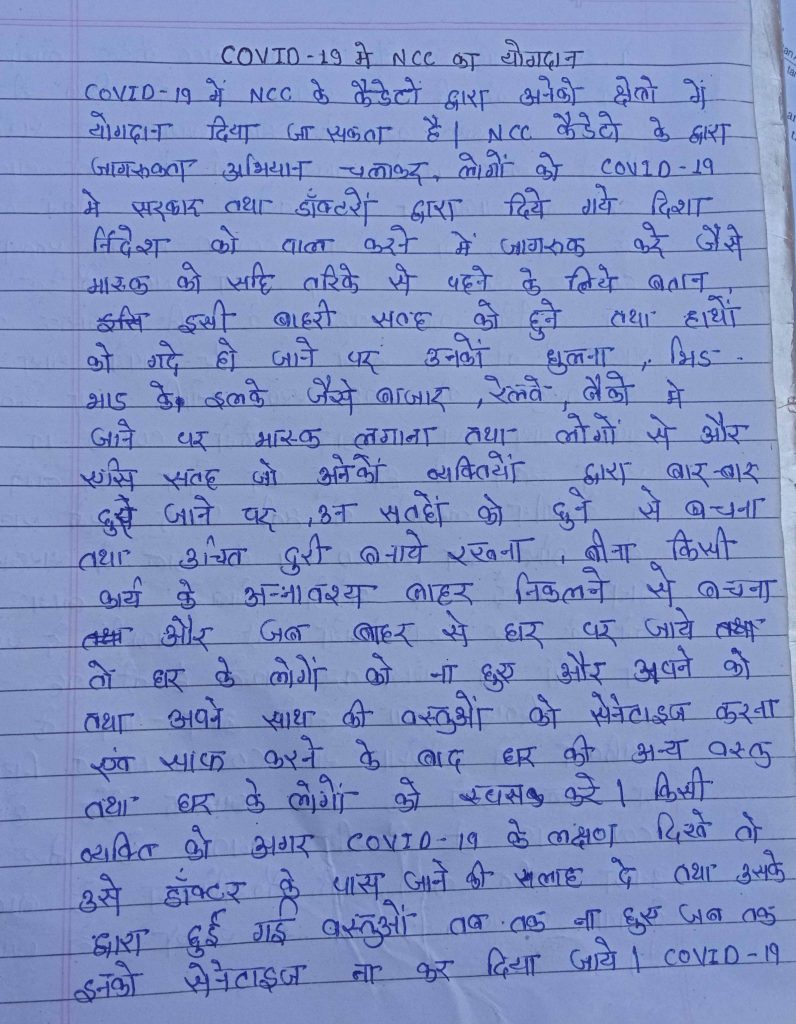 COVID-19 मे NCC का योगदान
COVID-19 में NCC के कैडेटों द्वारा अनेको क्षेत्रो में
योगदान दिया जा सकता है। NCC कैडेटो के द्वारा
जागरुकता अभियान चलाकर, लोगों को COVID-19
मे सरकार तथा डॉक्टरों द्वारा दिये गये दिशा
निर्देश को पालन करने में जागरुक करे जैसे
मास्क को सहि तरिके से पहने के लिये बतान,
इसी बाहरी सतह को छुने तथा हाथों
को गदे हो जाने पर उनकों धुलना, भिड-
भाड के इलके जैसे बाजार, रेलवे, बैको मे
जाने पर मास्क लगाना तथा लोगों से और
एसि सतह जो अनेकों व्यक्तियों द्वारा बार-बार
छुये जाने पर, उन सतहों को छुने से बचना
तथा उचित दुरी बनाये रखना, बीना किसी
कार्य के बाहर निकलने से बचना
और जब बाहर से घर पर जाये
तो घर के लोगों को ना छुए और अपने को
तथा अपने साथ की वस्तुओं को सेनेटाइज करना
एवं साफ करने के बाद घर की अन्य वस्तु
तथा घर के लोगों को करे। किसी
व्यक्ति को अगर COVID-19 के लक्षण दिखे तो
उसे डॉक्टर के पास जाने की सलाह दे तथा उसके
द्वारा छुई गई वस्तुओं तब तक ना छुए जब तक
इनको सेनेटाइज ना कर दिया जाये। COVID-19